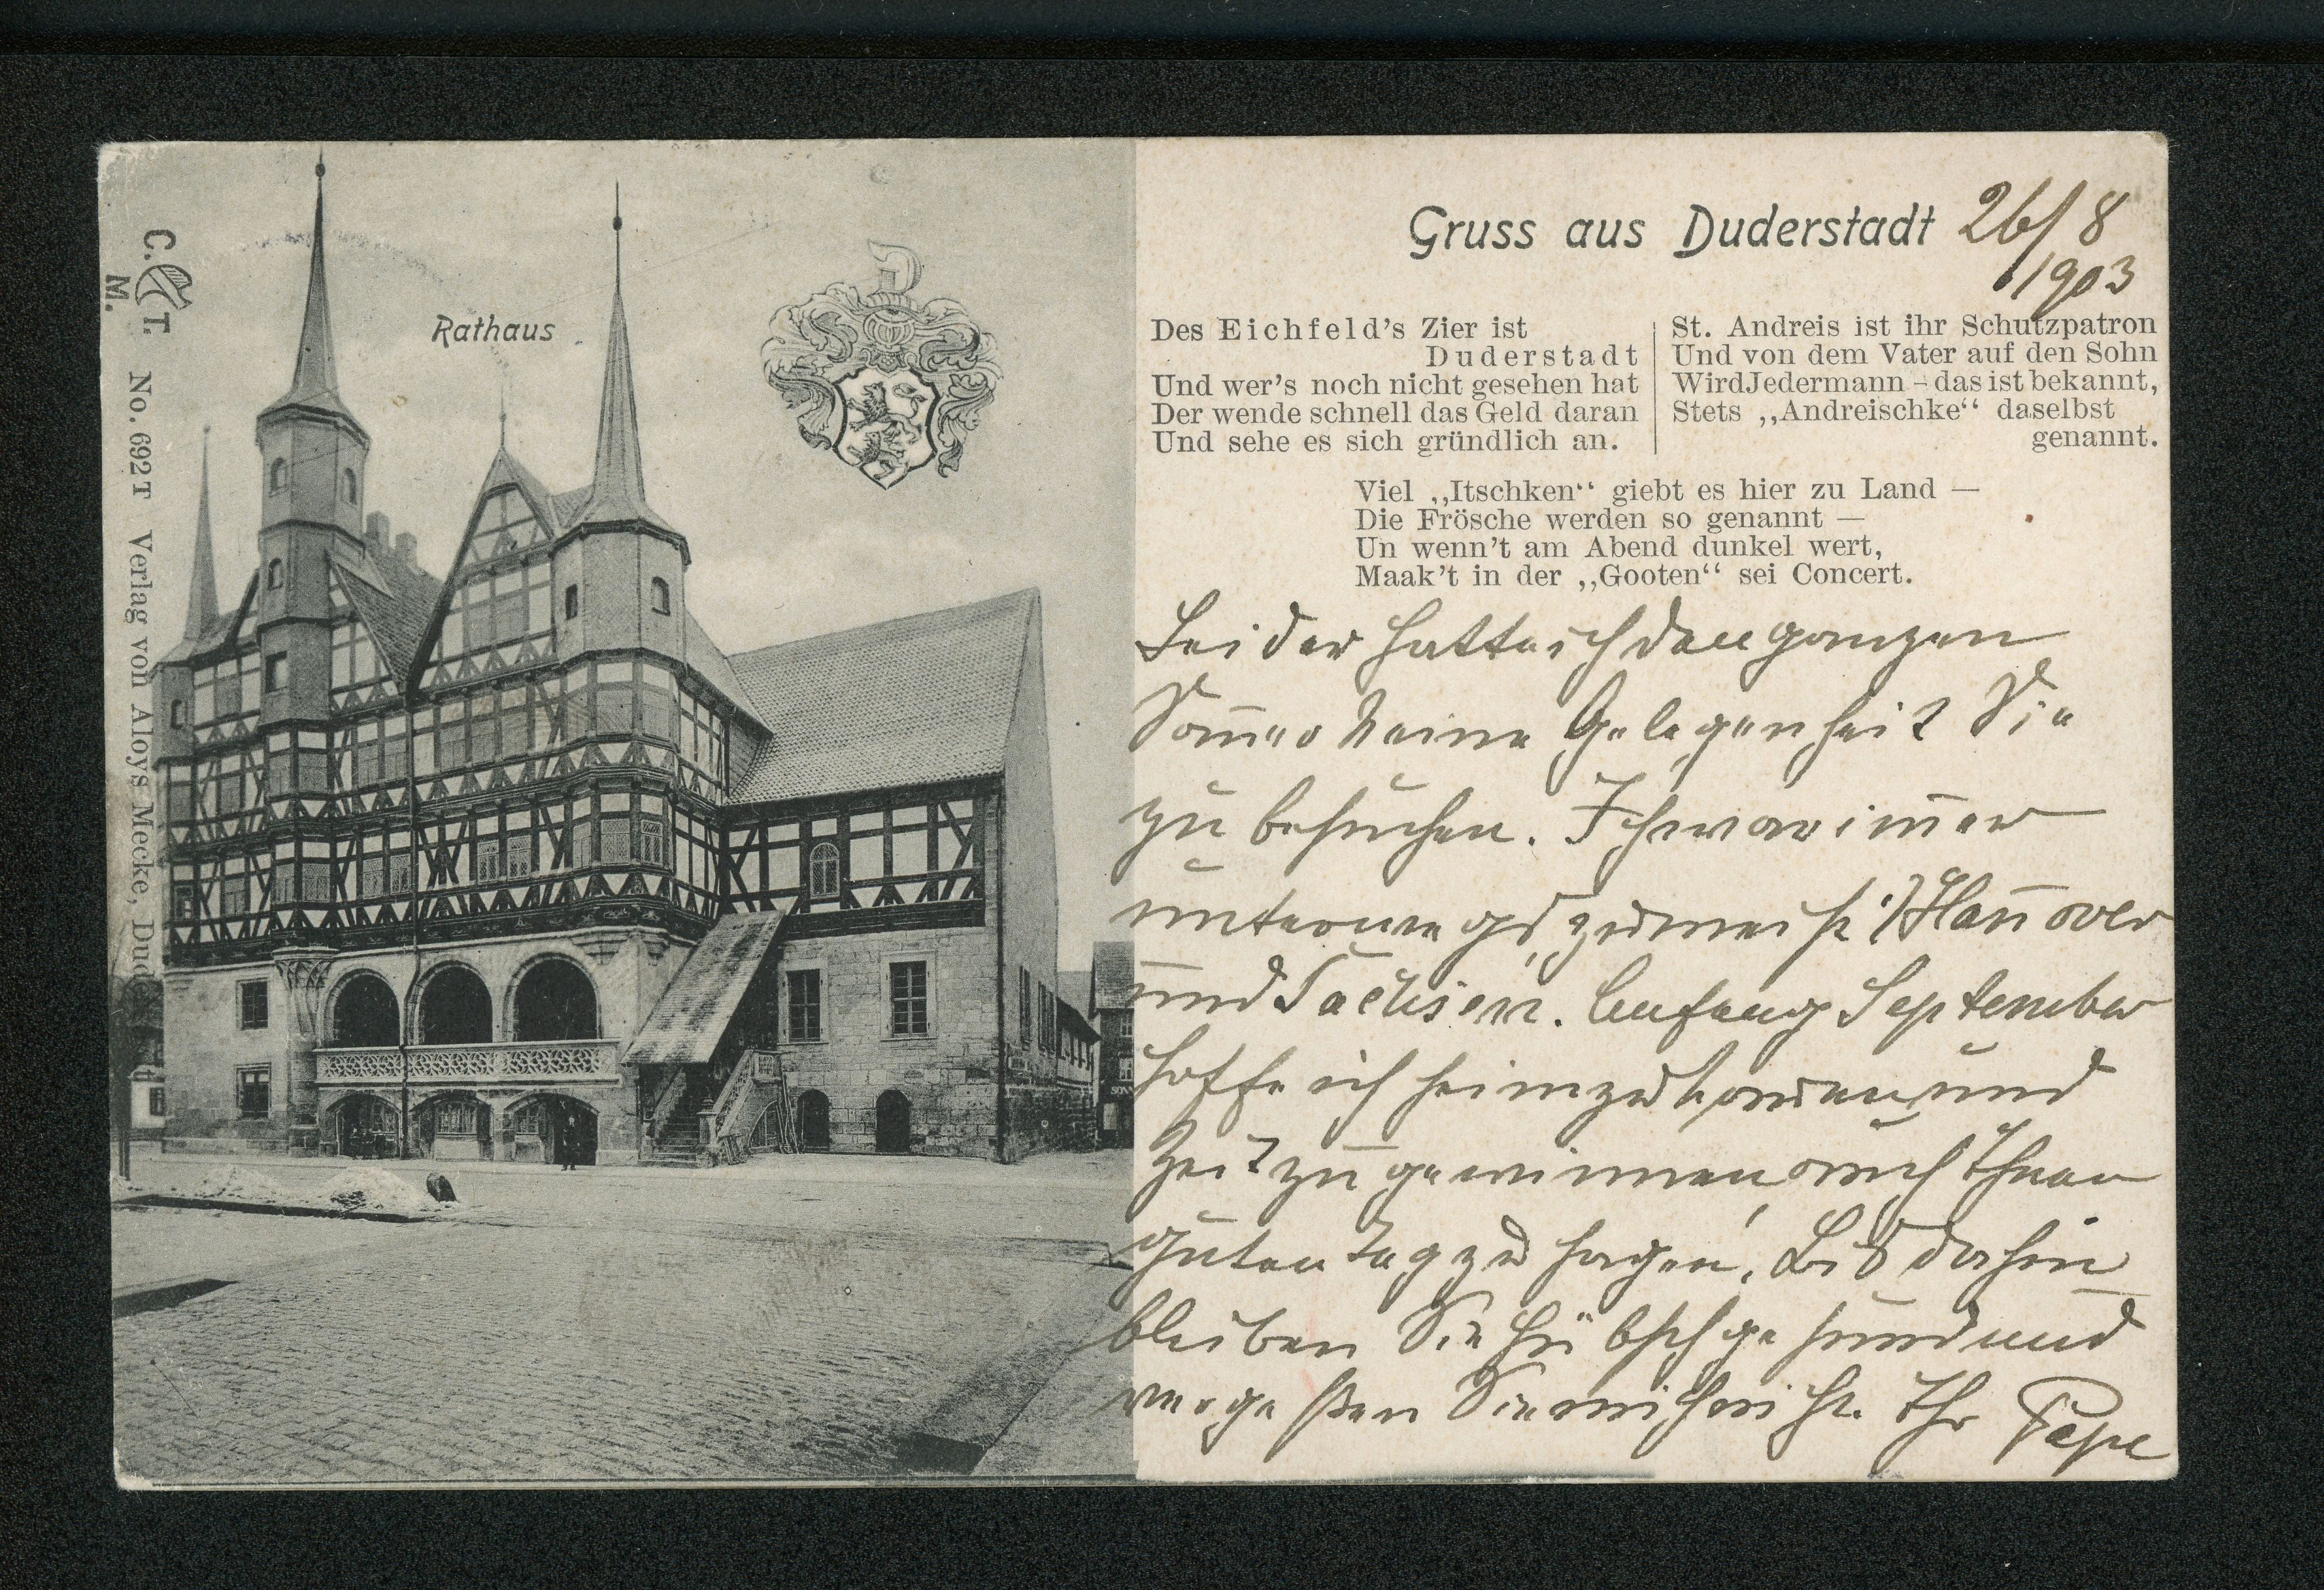 C. T.
M.
No. 692T Verlag von Aloys Mecke, Duderstadt
Rathaus
Gruss aus Duderstadt 26/8
1903
Des Eichfeld's Zier ist
Duderstadt
Und wer's noch nicht gesehen hat
Der wende schnell das Geld daran
Und sehe es sich gründlich an.
St. Andreis ist ihr Schutzpatron
Und von dem Vater auf den Sohn
Wird Jedermann – das ist bekannt,
Stets „Andreischke“ daselbst
genannt.
Viel „Itschken“ giebt es hier zu Land —
Die Frösche werden so genannt —
Un wenn't am Abend dunkel wert,
Maak't in der „Gooten“ sei Concert.
Leider hatte ich den ganzen
Som̄er keine Gelegenheit Sie
zu besuchen. Ich war im̄er
unterwegs, zumeist i/Han̄over
und Sachsen. Anfang September
hoffe ich heimzukom̄en und
Zeit zu gewinnen auch Ihnen
guten Tag zu sagen. Bis dahin
bleiben Sie hübsch gesund und
vergeßen Sie mich nicht. Ihr Pape